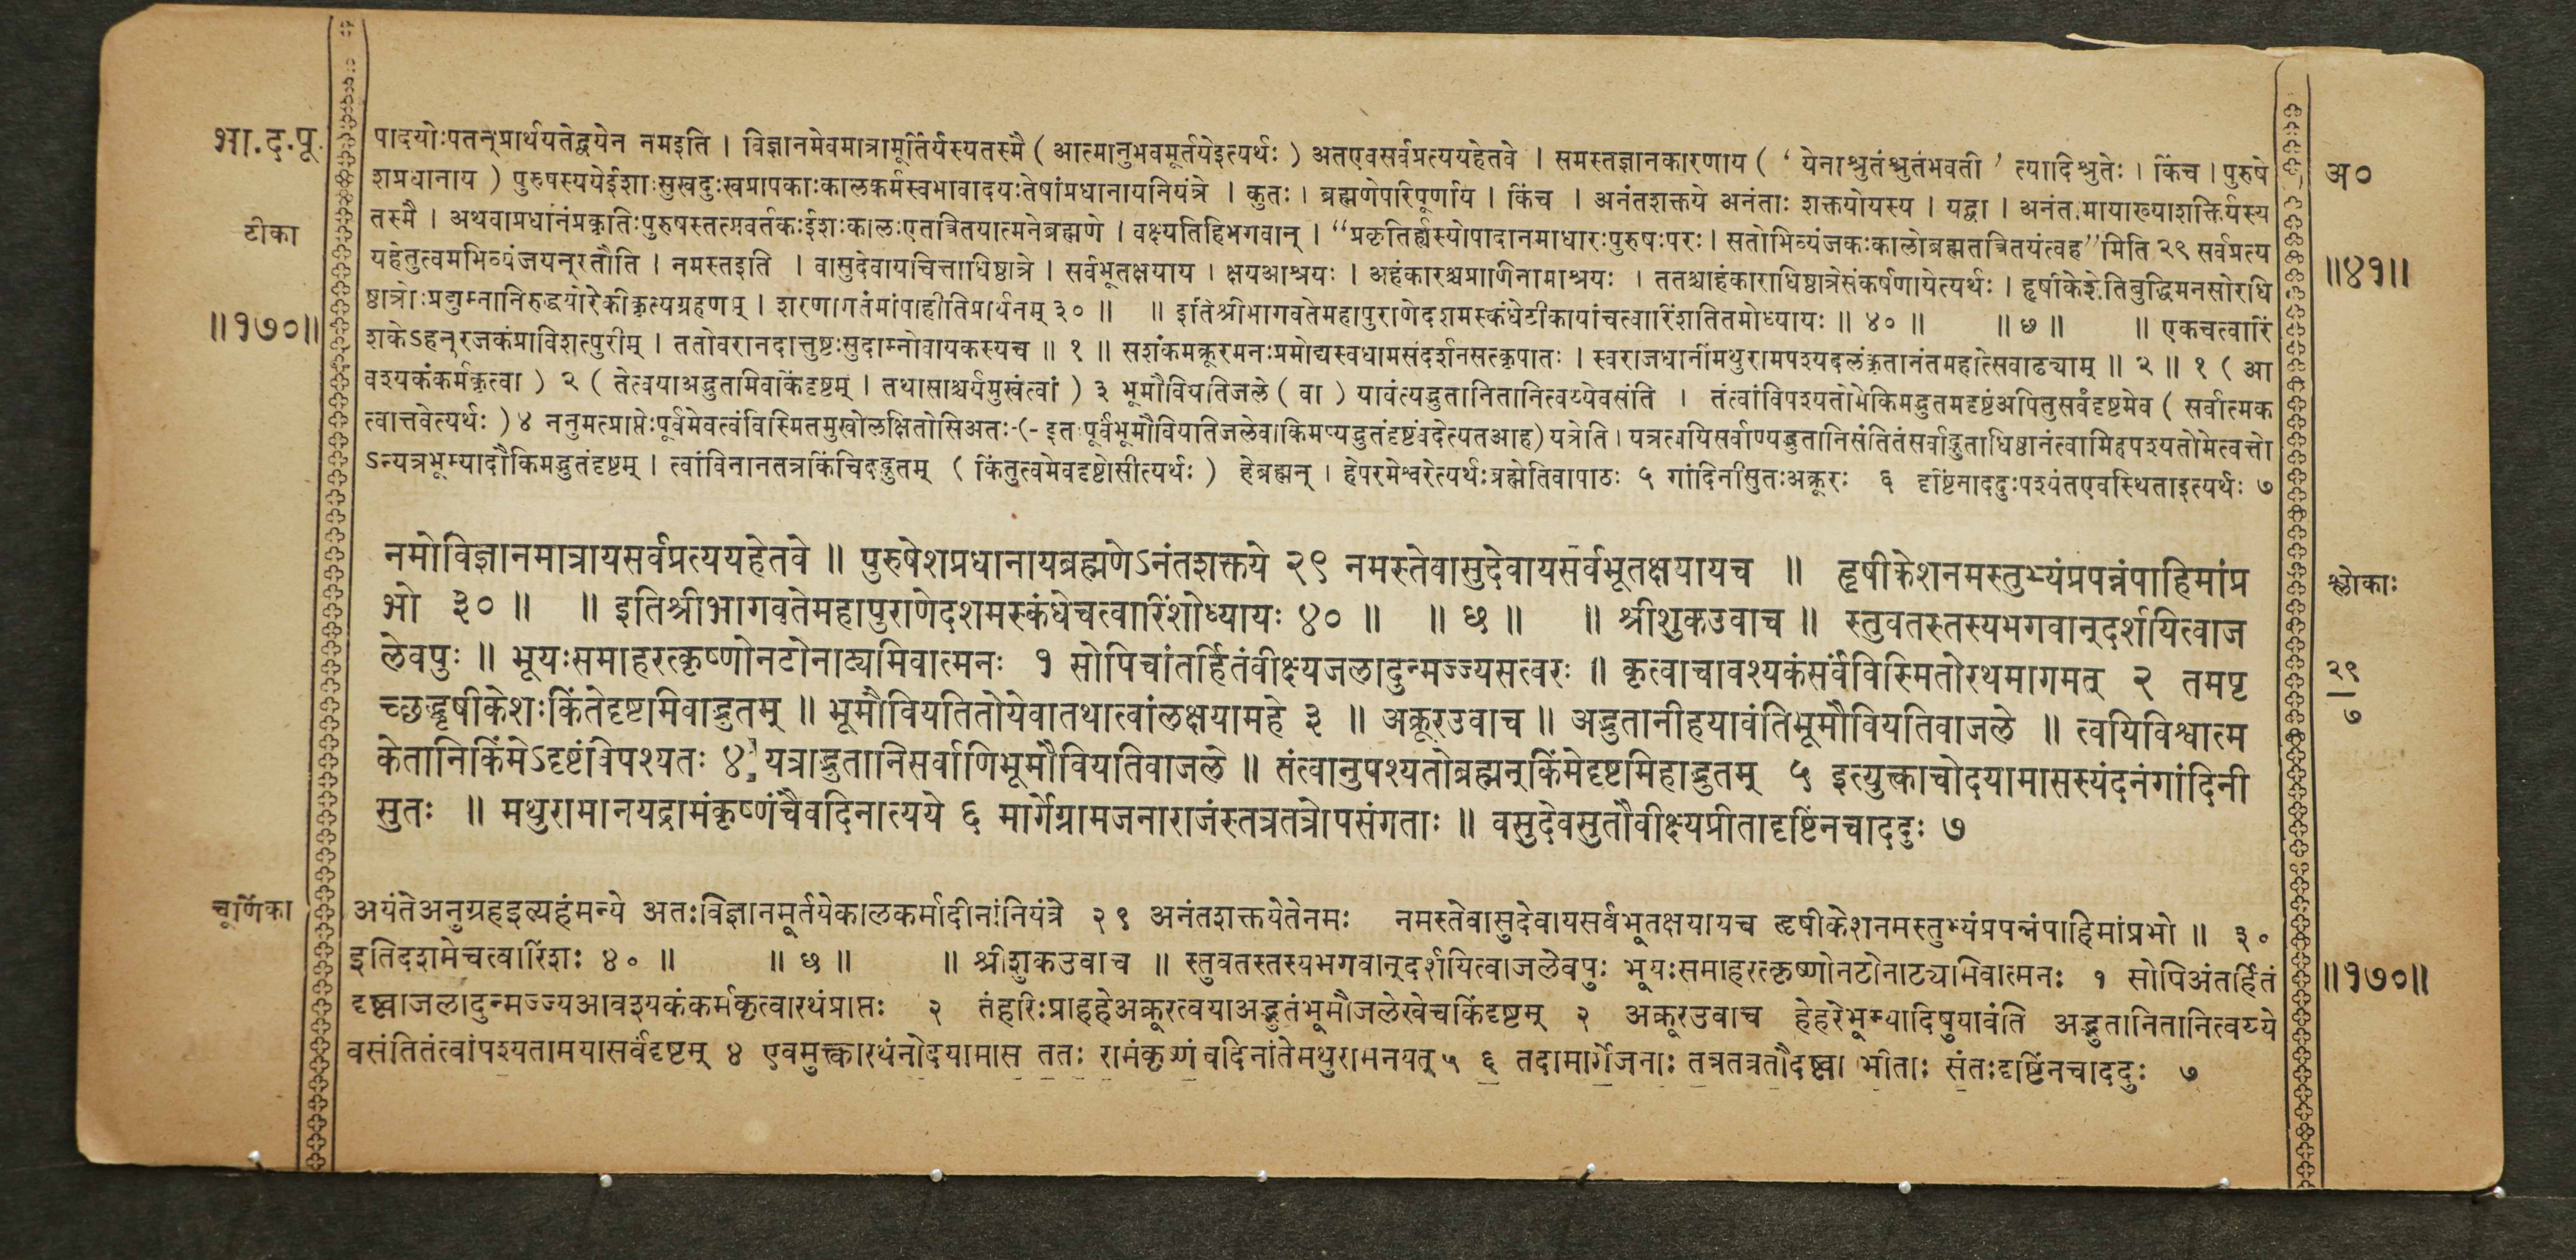 भा.द.पू.
पादयोःपतन्प्रार्थयतेद्वयेन नमइति । विज्ञानमेवमात्रामूर्तिर्यस्यतस्मै ( आत्मानुभवमूर्तयेइत्यर्थः ) अतएवसर्वप्रत्ययहेतवे । समस्तज्ञानकारणाय ( ‘ येनाश्रुतंश्रुतंभवती ’ त्यादिश्रुतेः । किंच । पुरुषे
शप्रधानाय ) पुरुषस्ययेईशाःसुखदुःखप्रापकाःकालकर्मस्वभावादयःतेषांप्रधानायनियंत्रे । कुतः । ब्रह्मणेपरिपूर्णाय । किंच । अनंतशक्तये अनंताः शक्तयोयस्य । यद्वा । अनंत.मायाख्याशक्तिर्यस्य
तस्मै । अथवाप्रधानंप्रकृतिःपुरुषस्तत्प्रवर्तकःईशःकालःएतत्रितयात्मनेब्रह्मणे । वक्ष्यतिहिभगवान् । “प्रकृतिर्ह्यस्योपादानमाधारःपुरुषःपरः । सतोभिव्यंजकःकालोब्रह्मतत्रितयंत्वह”मिति २९ सर्वप्रत्य
यहेतुत्वमभिव्यंजयन्स्तौति । नमस्तइति । वासुदेवायचित्ताधिष्ठात्रे । सर्वभूतक्षयाय । क्षयआश्रयः । अहंकारश्चप्राणिनामाश्रयः । ततश्चाहंकाराधिष्ठात्रेसंकर्षणायेत्यर्थः । हृषीकेशेतिबुद्धिमनसोरधि
ष्ठात्रोःप्रद्युम्नानिरुद्धयोरेकीकृत्यग्रहणम् । शरणागतंमांपाहीतिप्रार्थनम् ३० ॥ ॥ इतिश्रीभागवतेमहापुराणेदशमस्कंधेटीकायांचत्वारिंशतितमोध्यायः ॥ ४० ॥ ॥ ७ ॥ ॥ एकचत्वारिं
शकेऽहन्रजकंप्राविशत्पुरीम् । ततोवरानदात्तुष्टःसुदाम्नोवायकस्यच ॥ १ ॥ सशंकमक्रूरमनःप्रमोद्यस्वधामसंदर्शनसत्कृपातः । स्वराजधानींमथुरामपश्यदलंकृतानंतमहोत्सवाढ्याम् ॥ २ ॥ १ ( आ
वश्यकंकर्मकृत्वा ) २ ( तेत्वयाअद्भुतामिवकिंदृष्टम् । तथासाश्चर्यमुखंत्वां ) ३ भूमौवियतिजले ( वा ) यावंत्यद्भुतानितानित्वय्येवसंति । तंत्वांविपश्यतोमेकिमद्भुतमदृष्टंअपितुसर्वंदृष्टमेव ( सर्वात्मक
त्वात्तवेत्यर्थः ) ४ ननुमत्प्राप्तेःपूर्वमेवत्वंविस्मितमुखोलक्षितोसिअतः-(- इतःपूर्वंभूमौवियतिजलेवाकिमप्यद्भुतंदृष्टंवदेत्यतआह) यत्रेति । यत्रत्वयिसर्वाण्यद्भुतानिसंतितंसर्वाद्भुताधिष्ठानंत्वामिहपश्यतोमेत्वत्तो
ऽन्यत्रभूम्यादौकिमद्भुतंदृष्टम् । त्वांविनानतत्रकिंचिदद्भुतम् ( किंतुत्वमेवदृष्टोसीत्यर्थः ) हेब्रह्मन् । हेपरमेश्वरेत्यर्थःब्रह्मेतिवापाठः ५ गांदिनीसुतःअक्रूरः ६ दृष्टिंनाददुःपश्यंतएवस्थिताइत्यर्थः ७
टीका
॥१७०॥
अ०
॥४१॥
नमोविज्ञानमात्रायसर्वप्रत्ययहेतवे ॥ पुरुषेशप्रधानायब्रह्मणेऽनंतशक्तये २९ नमस्तेवासुदेवायसर्वभूतक्षयायच ॥ हृषीकेशनमस्तुभ्यंप्रपन्नंपाहिमांप्र
भो ३० ॥ ॥ इतिश्रीभागवतेमहापुराणेदशमस्कंधेचत्वारिंशोध्यायः ४० ॥ ॥ छ ॥ ॥ श्रीशुकउवाच ॥ स्तुवतस्तस्यभगवान्दर्शयित्वाज
लेवपुः ॥ भूयःसमाहरत्कृष्णोनटोनाट्यमिवात्मनः १ सोपिचांतर्हितंवीक्ष्यजलादुन्मज्ज्यसत्वरः ॥ कृत्वाचावश्यकंसर्वंविस्मितोरथमागमत् २ तमपृ
च्छद्धृषीकेशःकिंतेदृष्टमिवाद्भुतम् ॥ भूमौवियतितोयेवातथात्वांलक्षयामहे ३ ॥ अक्रूरउवाच ॥ अद्भुतानीहयावंतिभूमौवियतिवाजले ॥ त्वयिविश्वात्म
केतानिकिंमेऽदृष्टंविपश्यतः ४ यत्राद्भुतानिसर्वाणिभूमौवियतिवाजले ॥ तंत्वानुपश्यतोब्रह्मन्किंमेदृष्टमिहाद्भुतम् ५ इत्युक्त्वाचोदयामासस्यंदनंगांदिनी
सुतः ॥ मथुरामानयद्रामंकृष्णंचैवदिनात्यये ६ मार्गेग्रामजनाराजंस्तत्रतत्रोपसंगताः ॥ वसुदेवसुतौवीक्ष्यप्रीतादृष्टिंनचाददुः ७
श्लोकाः
२९
७
चूर्णिका
अयंतेअनुग्रहइत्यहंमन्ये अतःविज्ञानमूर्तयेकालकर्मादीनांनियंत्रे २९ अनंतशक्तयेतेनमः नमस्तेवासुदेवायसर्वभूतक्षयायच हृषीकेशनमस्तुभ्यंप्रपन्नंपाहिमांप्रभो ॥ ३०
इतिदशमेचत्वारिंशः ४० ॥ ॥ छ ॥ ॥ श्रीशुकउवाच ॥ स्तुवतस्तस्यभगवान्दर्शयित्वाजलेवपुः भूयःसमाहरत्कृष्णोनटोनाट्यमिवात्मनः १ सोपिअंतर्हितं
दृष्ट्वाजलादुन्मज्ज्यआवश्यकंकर्मकृत्वारथंप्राप्तः २ तंहरिःप्राहहेअक्रूरत्वयाअद्भुतंभूमौजलेखेचकिंदृष्टम् ३ अक्रूरउवाच हेहरेभूम्यादिषुयावंति अद्भुतानितानित्वय्ये
वसंतितंत्वांपश्यतामयासर्वंदृष्टम् ४ एवमुक्त्वारथंनोदयामास ततः रामंकृष्णं वदिनांतेमथुरामनयत् ५ ६ तदामार्गेजनाः तत्रतत्रतौदृष्ट्वा भीताः संतःदृष्टिंनचाददुः ७
॥१७०॥